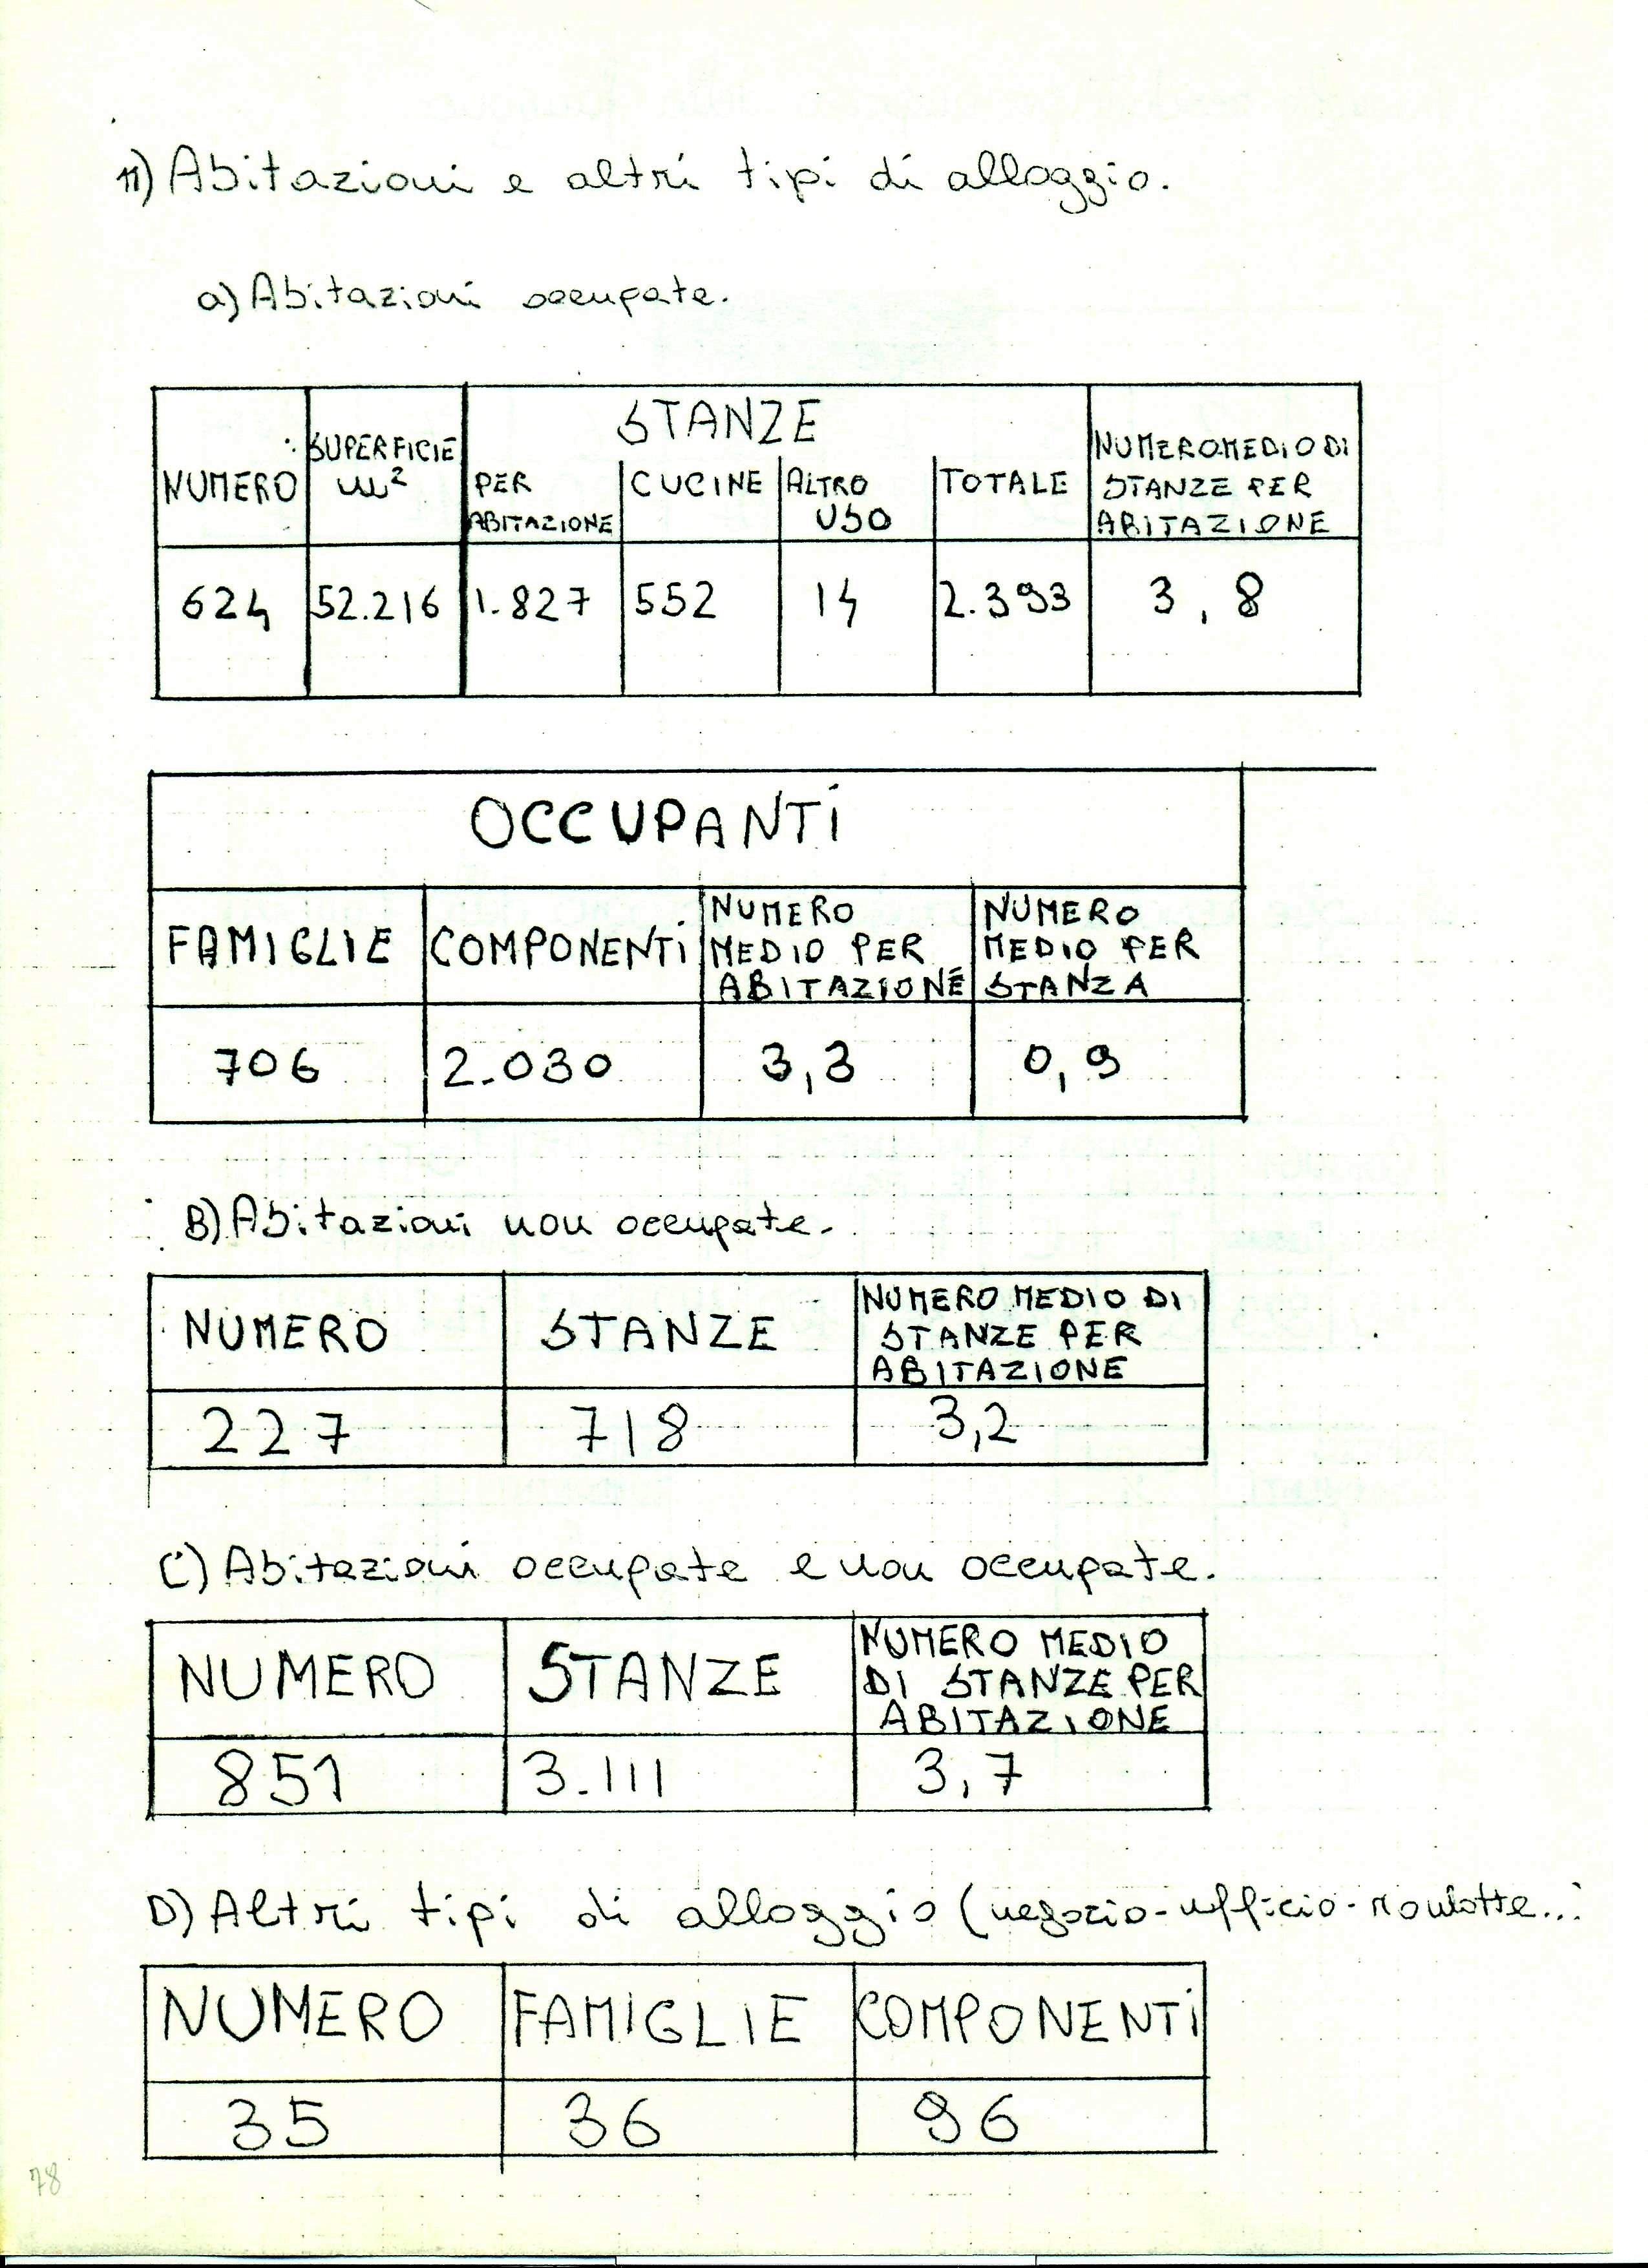 11) Abitazioni e altri tipi di alloggio.
a) Abitazioni occupate.
STANZE
NUMERO SUPERFICIE m² PER ABITAZIONE CUCINE ALTRO USO TOTALE NUMERO MEDIO DI STANZE PER ABITAZIONE
624 52.216 1.827 552 14 2.393 3,8
OCCUPANTI
FAMIGLIE COMPONENTI NUMERO MEDIO PER ABITAZIONE NUMERO MEDIO PER STANZA
706 2.030 3,3 0,9
B) Abitazioni non occupate.
NUMERO STANZE NUMERO MEDIO DI STANZE PER ABITAZIONE
227 718 3,2
C) Abitazioni occupate e non occupate.
NUMERO STANZE NUMERO MEDIO DI STANZE PER ABITAZIONE
851 3.111 3,7
D) Altri tipi di alloggio (negozio-ufficio-roulotte...
NUMERO FAMIGLIE COMPONENTI
35 36 96
78